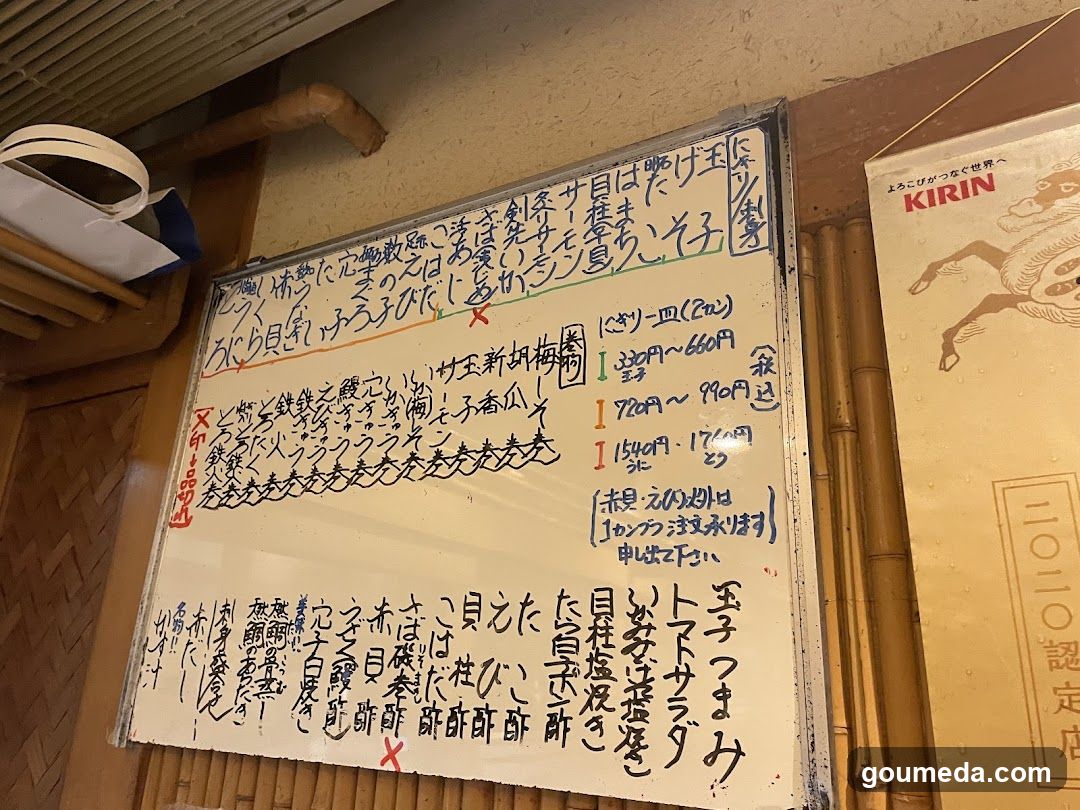 にぎり/刺身
玉子
げそ
明石たこ
はまち
貝柱
サーモン
炙りサーモン
剣先いか
さば
活あじ
こはだ
えび
数の子
まぐろ
穴子
たい
赤貝
いくら
うに
とろ
にぎり一皿(2カン)
330円〜660円
玉子
720円〜990円
(税込)
1540円・1760円
うに とろ
(赤貝・えび)以外は
1カンヅツ注文承ります
申し出て下さい
巻物
梅しそ巻
胡瓜巻
新香巻
玉子巻
サーモン巻
いか(梅)しそ巻
いかきゅう巻
穴きゅう巻
鰻きゅう巻
えびきゅう巻
鉄きゅう巻
鉄火巻
とろたく巻
とろ鉄火巻
(×印→品切れ)
玉子つまみ
トマトサラダ
いかみみげそ塩焼き
貝柱塩焼き
たら白子ポン酢
たこ酢
えび酢
貝柱酢
こはだ酢
さば磯巻酢
赤貝酢
うざく(鰻酢)
穴子白焼き
美味!!
天然鯛の骨蒸し
天然鯛のあらだき
刺身盛合せ
赤だし
名物!!
かす汁
よろこびがつなぐ世界へ
KIRIN
二〇二〇認定店
goumeda.com